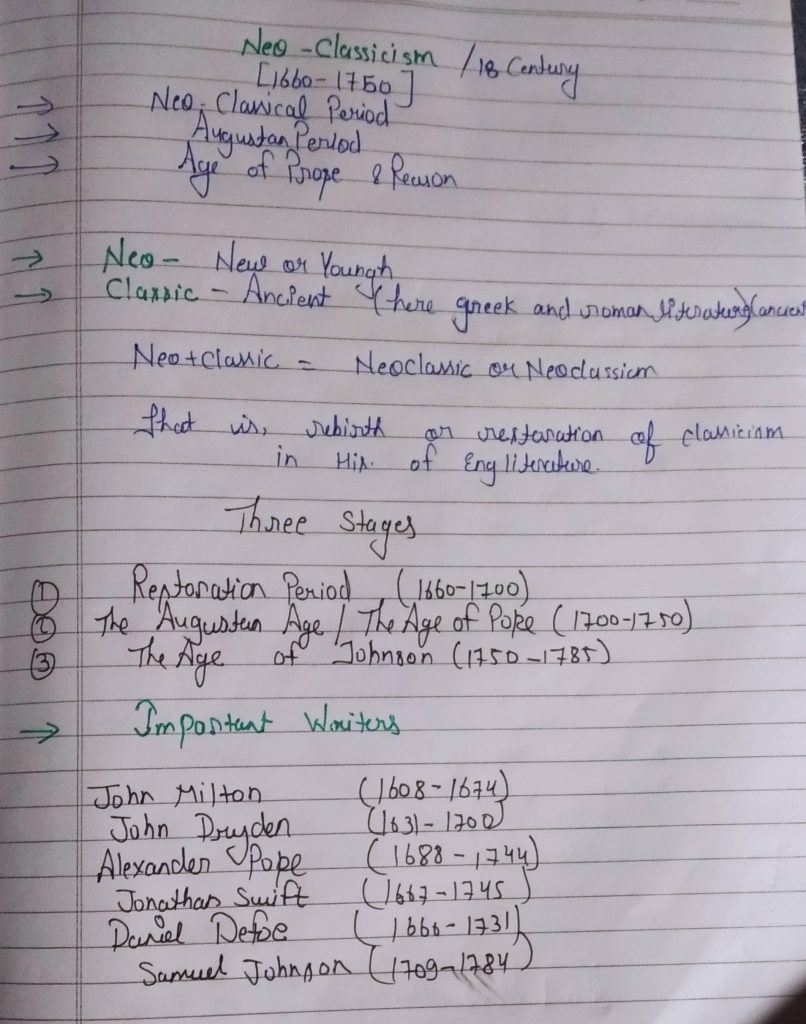 Neo-Classicism / 18 Century
[1660-1750]
→ Neo-Classical Period
→ Augustan Period
→ Age of Prope & Reason
→ Neo - New or Youngh
→ Classic - Ancient (here greek and roman literature) (ancient
Neo+Classic = Neoclassic or Neoclassicm
that is, rebirth or restoration of classicism
in His. of Eng literature.
Three Stages
① Restoration Period (1660-1700)
② The Augustan Age / The Age of Pope (1700-1750)
③ The Age of Johnson (1750-1785)
→ Important Writers
John Milton (1608-1674)
John Dryden (1631-1700)
Alexander Pope (1688-1744)
Jonathan Swift (1667-1745)
Daniel Defoe (1666-1731)
Samuel Johnson (1709-1784)